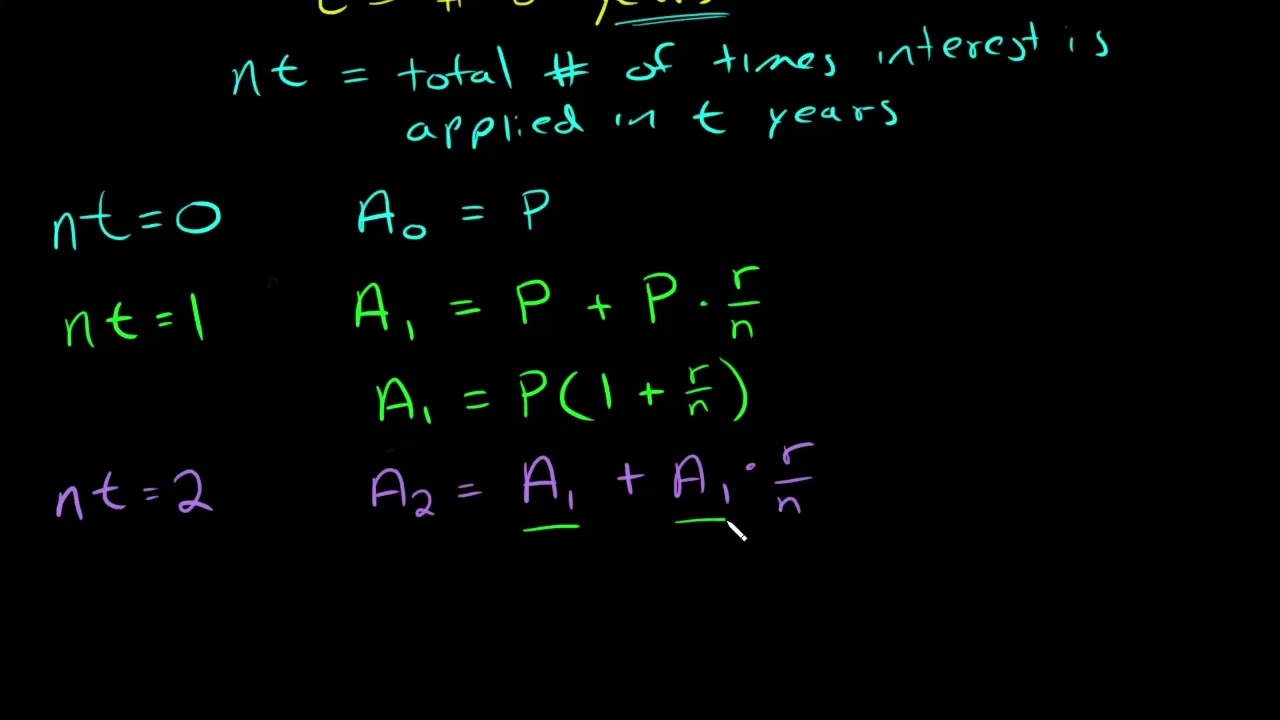 years
nt = total # of times interest is
applied in t years
nt = 0 A₀ = P
nt = 1 A₁ = P + P · r/n
A₁ = P(1 + r/n)
nt = 2 A₂ = A₁ + A₁ · r/n